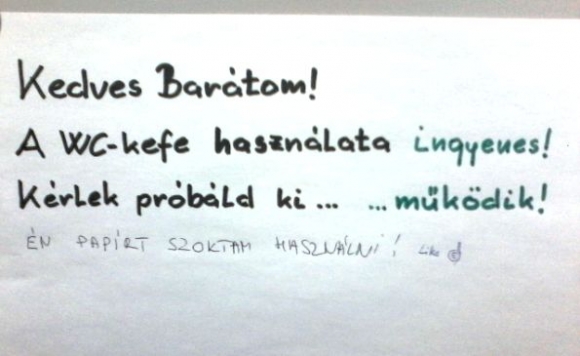 Kedves Barátom!
A WC-kefe használata ingyenes!
Kérlek próbáld ki... ...működik!
ÉN PAPÍRT SZOKTAM HASZNÁLNI! Like